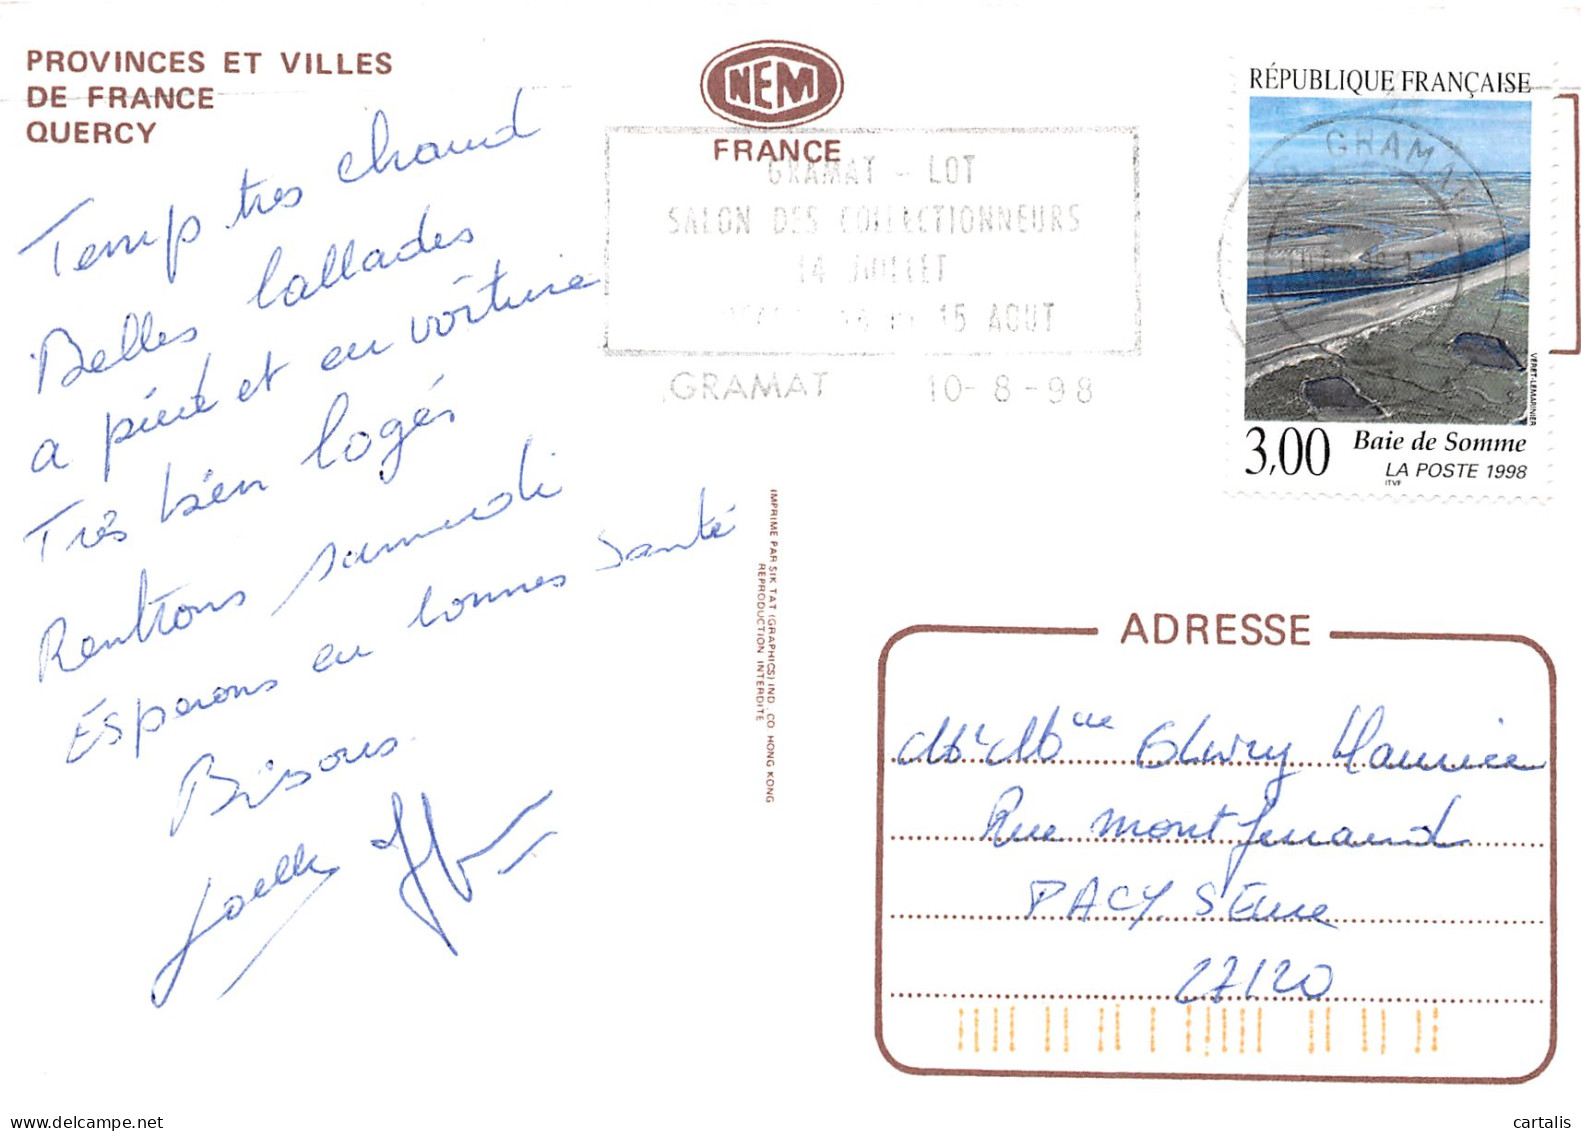 PROVINCES ET VILLES
DE FRANCE
QUERCY
NEM
FRANCE
Temp tres chaud
Belles ballades
a pied et en voiture
Très bien logés
Rentrons samedi
Esperons en bonnes santé
Bisous.
Joelle
GRAMAT - LOT
SALON DES COLLECTIONNEURS
14 JUILLET
15 AOUT
GRAMAT 10-8-98
RÉPUBLIQUE FRANÇAISE
GRAMAT
VERET-LEMARINIER
3,00 Baie de Somme
LA POSTE 1998
ITVF
IMPRIME PAR SIK TAT (GRAPHICS) IND. CO HONG KONG
REPRODUCTION INTERDITE
ADRESSE
Mr Mme Maurice
Rue montferrand
PACY S Eure
27120
cartalis
delcampe.net